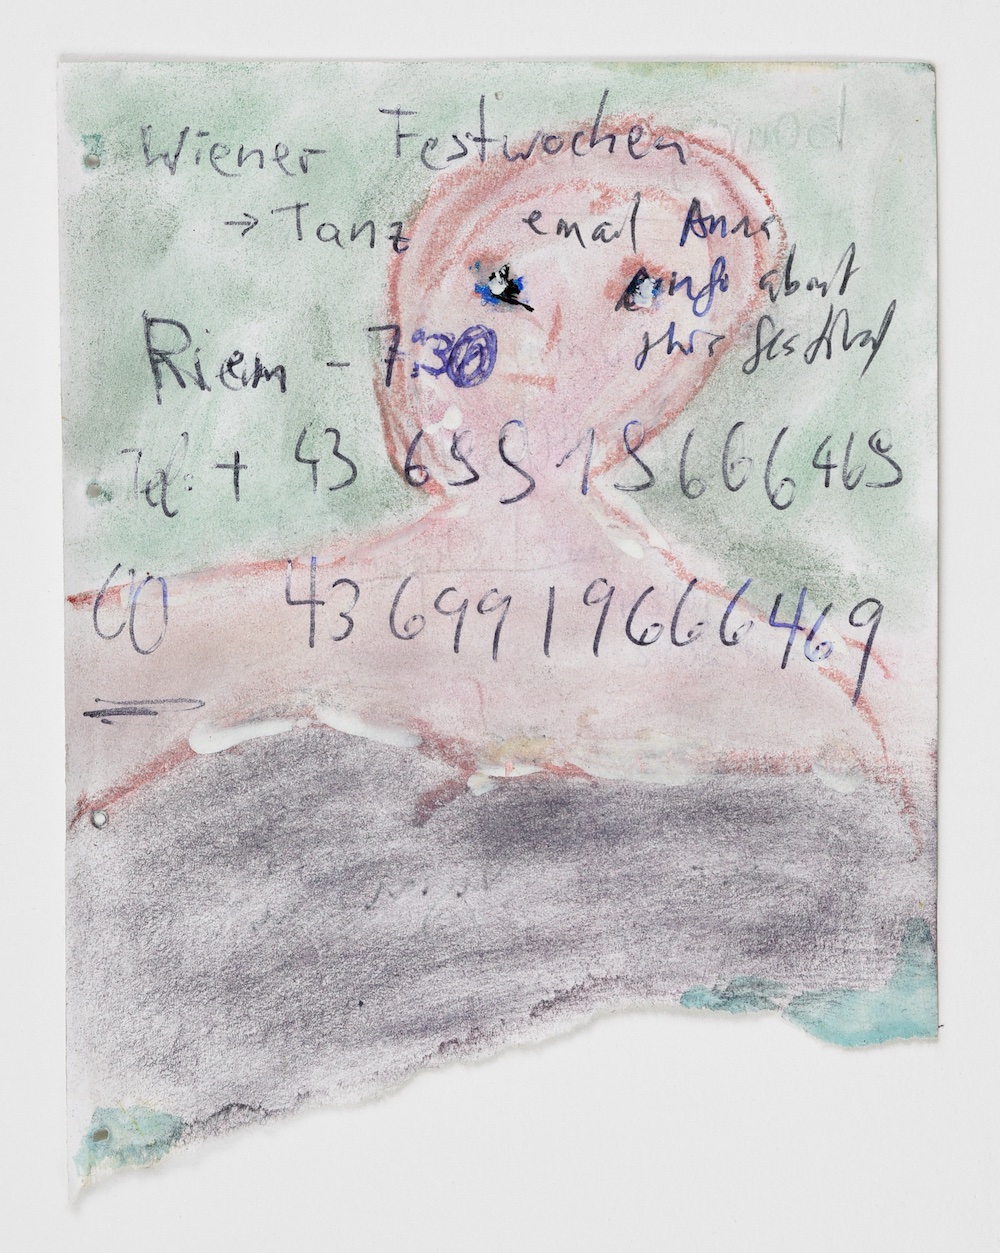 Wiener Festwochen
→ Tanz email Anna
info about
this festival
Riem - 7:30
Tel: + 43 699 19666469
00 43 699 19666469